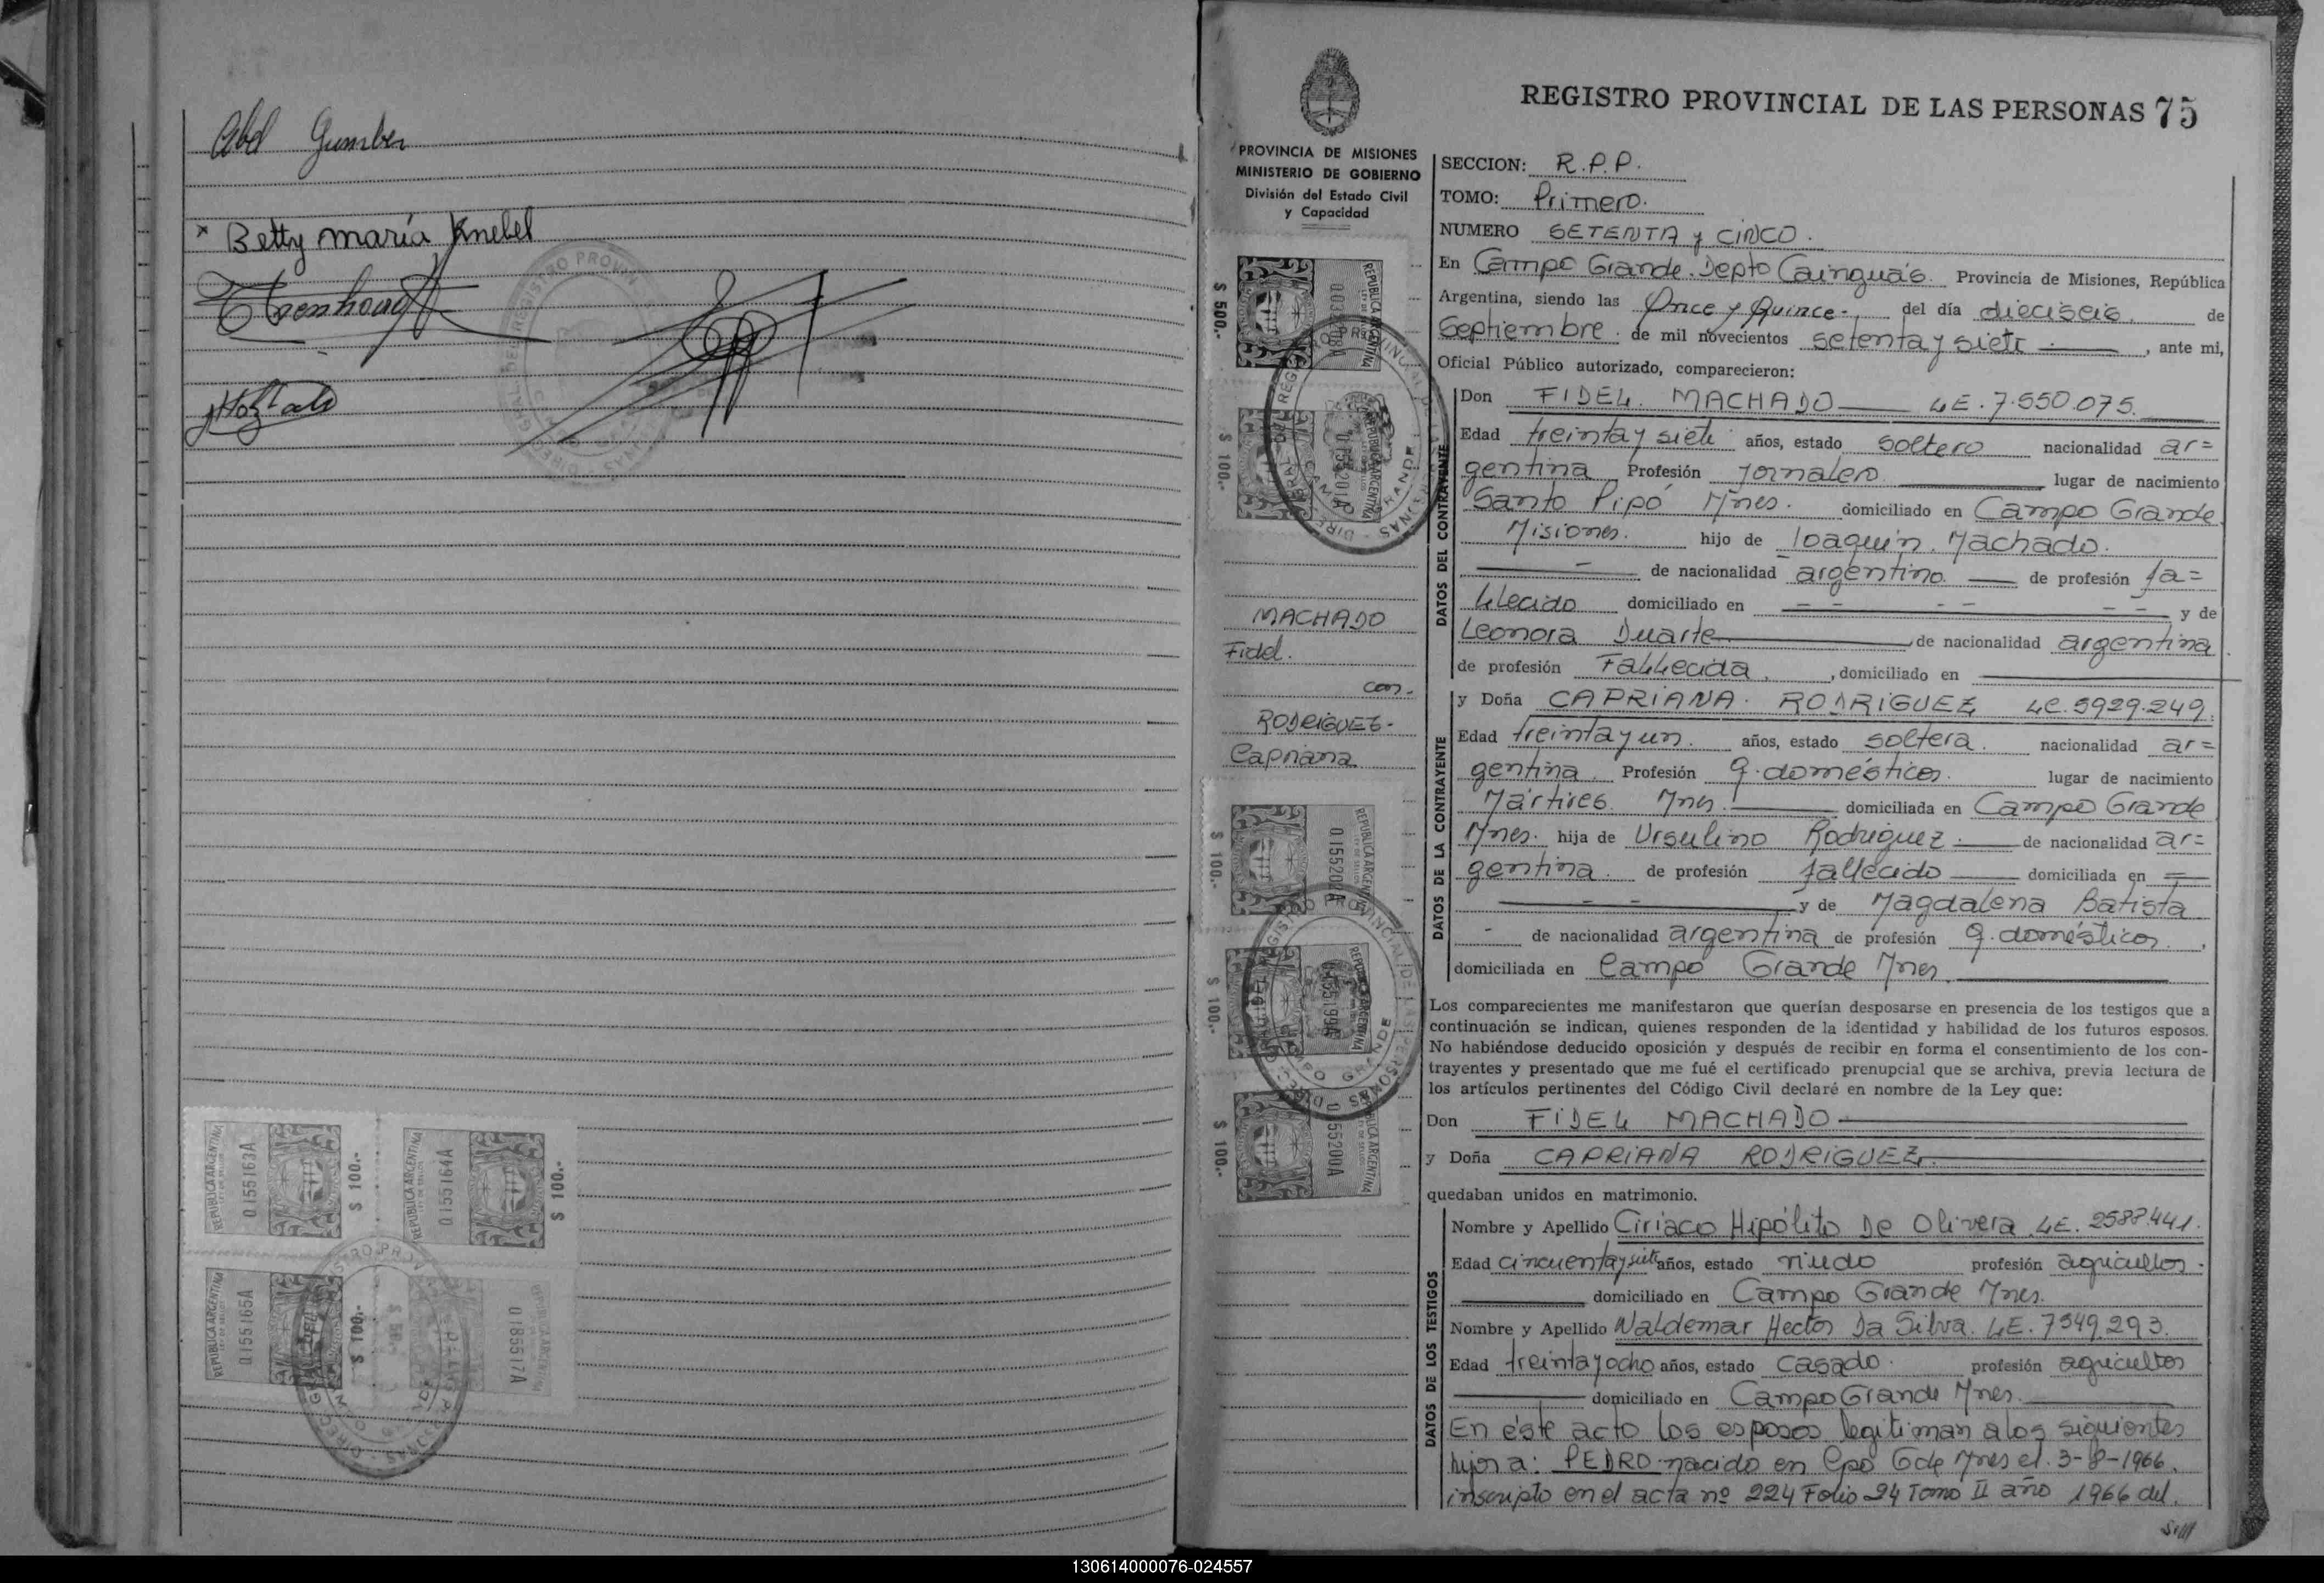 Abel Gumber
x Betty maría Knebel
REGISTRO PROVINCIAL DE LAS PERSONAS 75
PROVINCIA DE MISIONES
MINISTERIO DE GOBIERNO
División del Estado Civil
y Capacidad
SECCION: R.P.P.
TOMO: Primero.
NUMERO SETENTA y CINCO.
En Campo Grande. Depto Cainguás. Provincia de Misiones, República
Argentina, siendo las Once y Quince.- del día dieciseis. de
Septiembre. de mil novecientos setenta y siete , ante mi,
Oficial Público autorizado, comparecieron:
DATOS DEL CONTRAYENTE
Don FIDEL. MACHADO LE. 7.550.075.
Edad treinta y siete años, estado soltero nacionalidad ar=
gentina Profesión Jornalero lugar de nacimiento
Santo Pipó Mnes. domiciliado en Campo Grande
Misiones. hijo de Joaquín Machado.
de nacionalidad argentino. de profesión fa=
llecido domiciliado en y de
Leonora Duarte de nacionalidad argentina
de profesión Fallecida , domiciliado en
MACHADO
Fidel.
con-
RODRIGUEZ-
Capriana
DATOS DE LA CONTRAYENTE
y Doña CAPRIANA. RODRIGUEZ LC. 5929.249.
Edad treinta y un. años, estado soltera. nacionalidad ar=
gentina. Profesión q.domésticos. lugar de nacimiento
Mártires. Mnes. domiciliada en Campo Grande
Mnes. hija de Ursulino Rodriguez de nacionalidad ar=
gentina. de profesión fallecido domiciliada en =
y de Magdalena Batista
- de nacionalidad argentina de profesión q.domésticos.,
domiciliada en Campo Grande Mnes
Los comparecientes me manifestaron que querían desposarse en presencia de los testigos que a
continuación se indican, quienes responden de la identidad y habilidad de los futuros esposos.
No habiéndose deducido oposición y después de recibir en forma el consentimiento de los con-
trayentes y presentado que me fué el certificado prenupcial que se archiva, previa lectura de
los artículos pertinentes del Código Civil declaré en nombre de la Ley que:
Don FIDEL MACHADO
y Doña CAPRIANA RODRIGUEZ
quedaban unidos en matrimonio.
DATOS DE LOS TESTIGOS
Nombre y Apellido Ciriaco Hipólito De Olivera. LE. 2588.441.
Edad cincuenta y siete años, estado viudo profesión agricultor.
domiciliado en Campo Grande Mnes.
Nombre y Apellido Waldemar Hector Da Silva. LE. 7549.293.
Edad treinta y ocho años, estado casado. profesión agricultor
domiciliado en Campo Grande Mnes.
En éste acto los esposos legitiman a los siguientes
hijos a: PEDRO nacido en Cpo Gde Mnes el 3-8-1966.
inscripto en el acta nº 224 Folio 24 Tomo II año 1966 del.
$ 500.-
$ 100.-
REPUBLICA ARGENTINA
$ 100.-
0155202A
$ 100.-
$ 100.-
0155200A
REPUBLICA ARGENTINA
0155163A
$ 100.-
REPUBLICA ARGENTINA
0155164A
$ 100.-
REPUBLICA ARGENTINA
0155165A
$ 100.-
0185517A
130614000076-024557